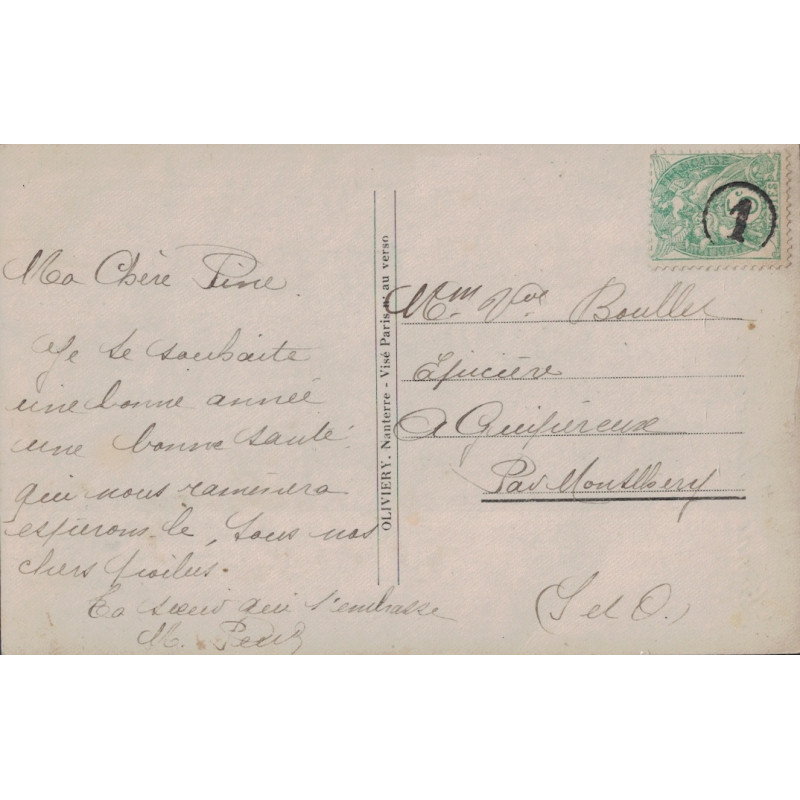 Ma Chère Pine
Je te souhaite
une bonne année
une bonne santé
qui nous ramènera
espierons le, tous nos
chers poilus.
Ta soeur qui t'embrasse
M.
OLIVIERY, Nanterre - Visé Paris n° au verso
FRANÇAISE
5
1
Mme Vve Boullet
Epicière
A Guipéreux
Par Montlhery
(S et O.)